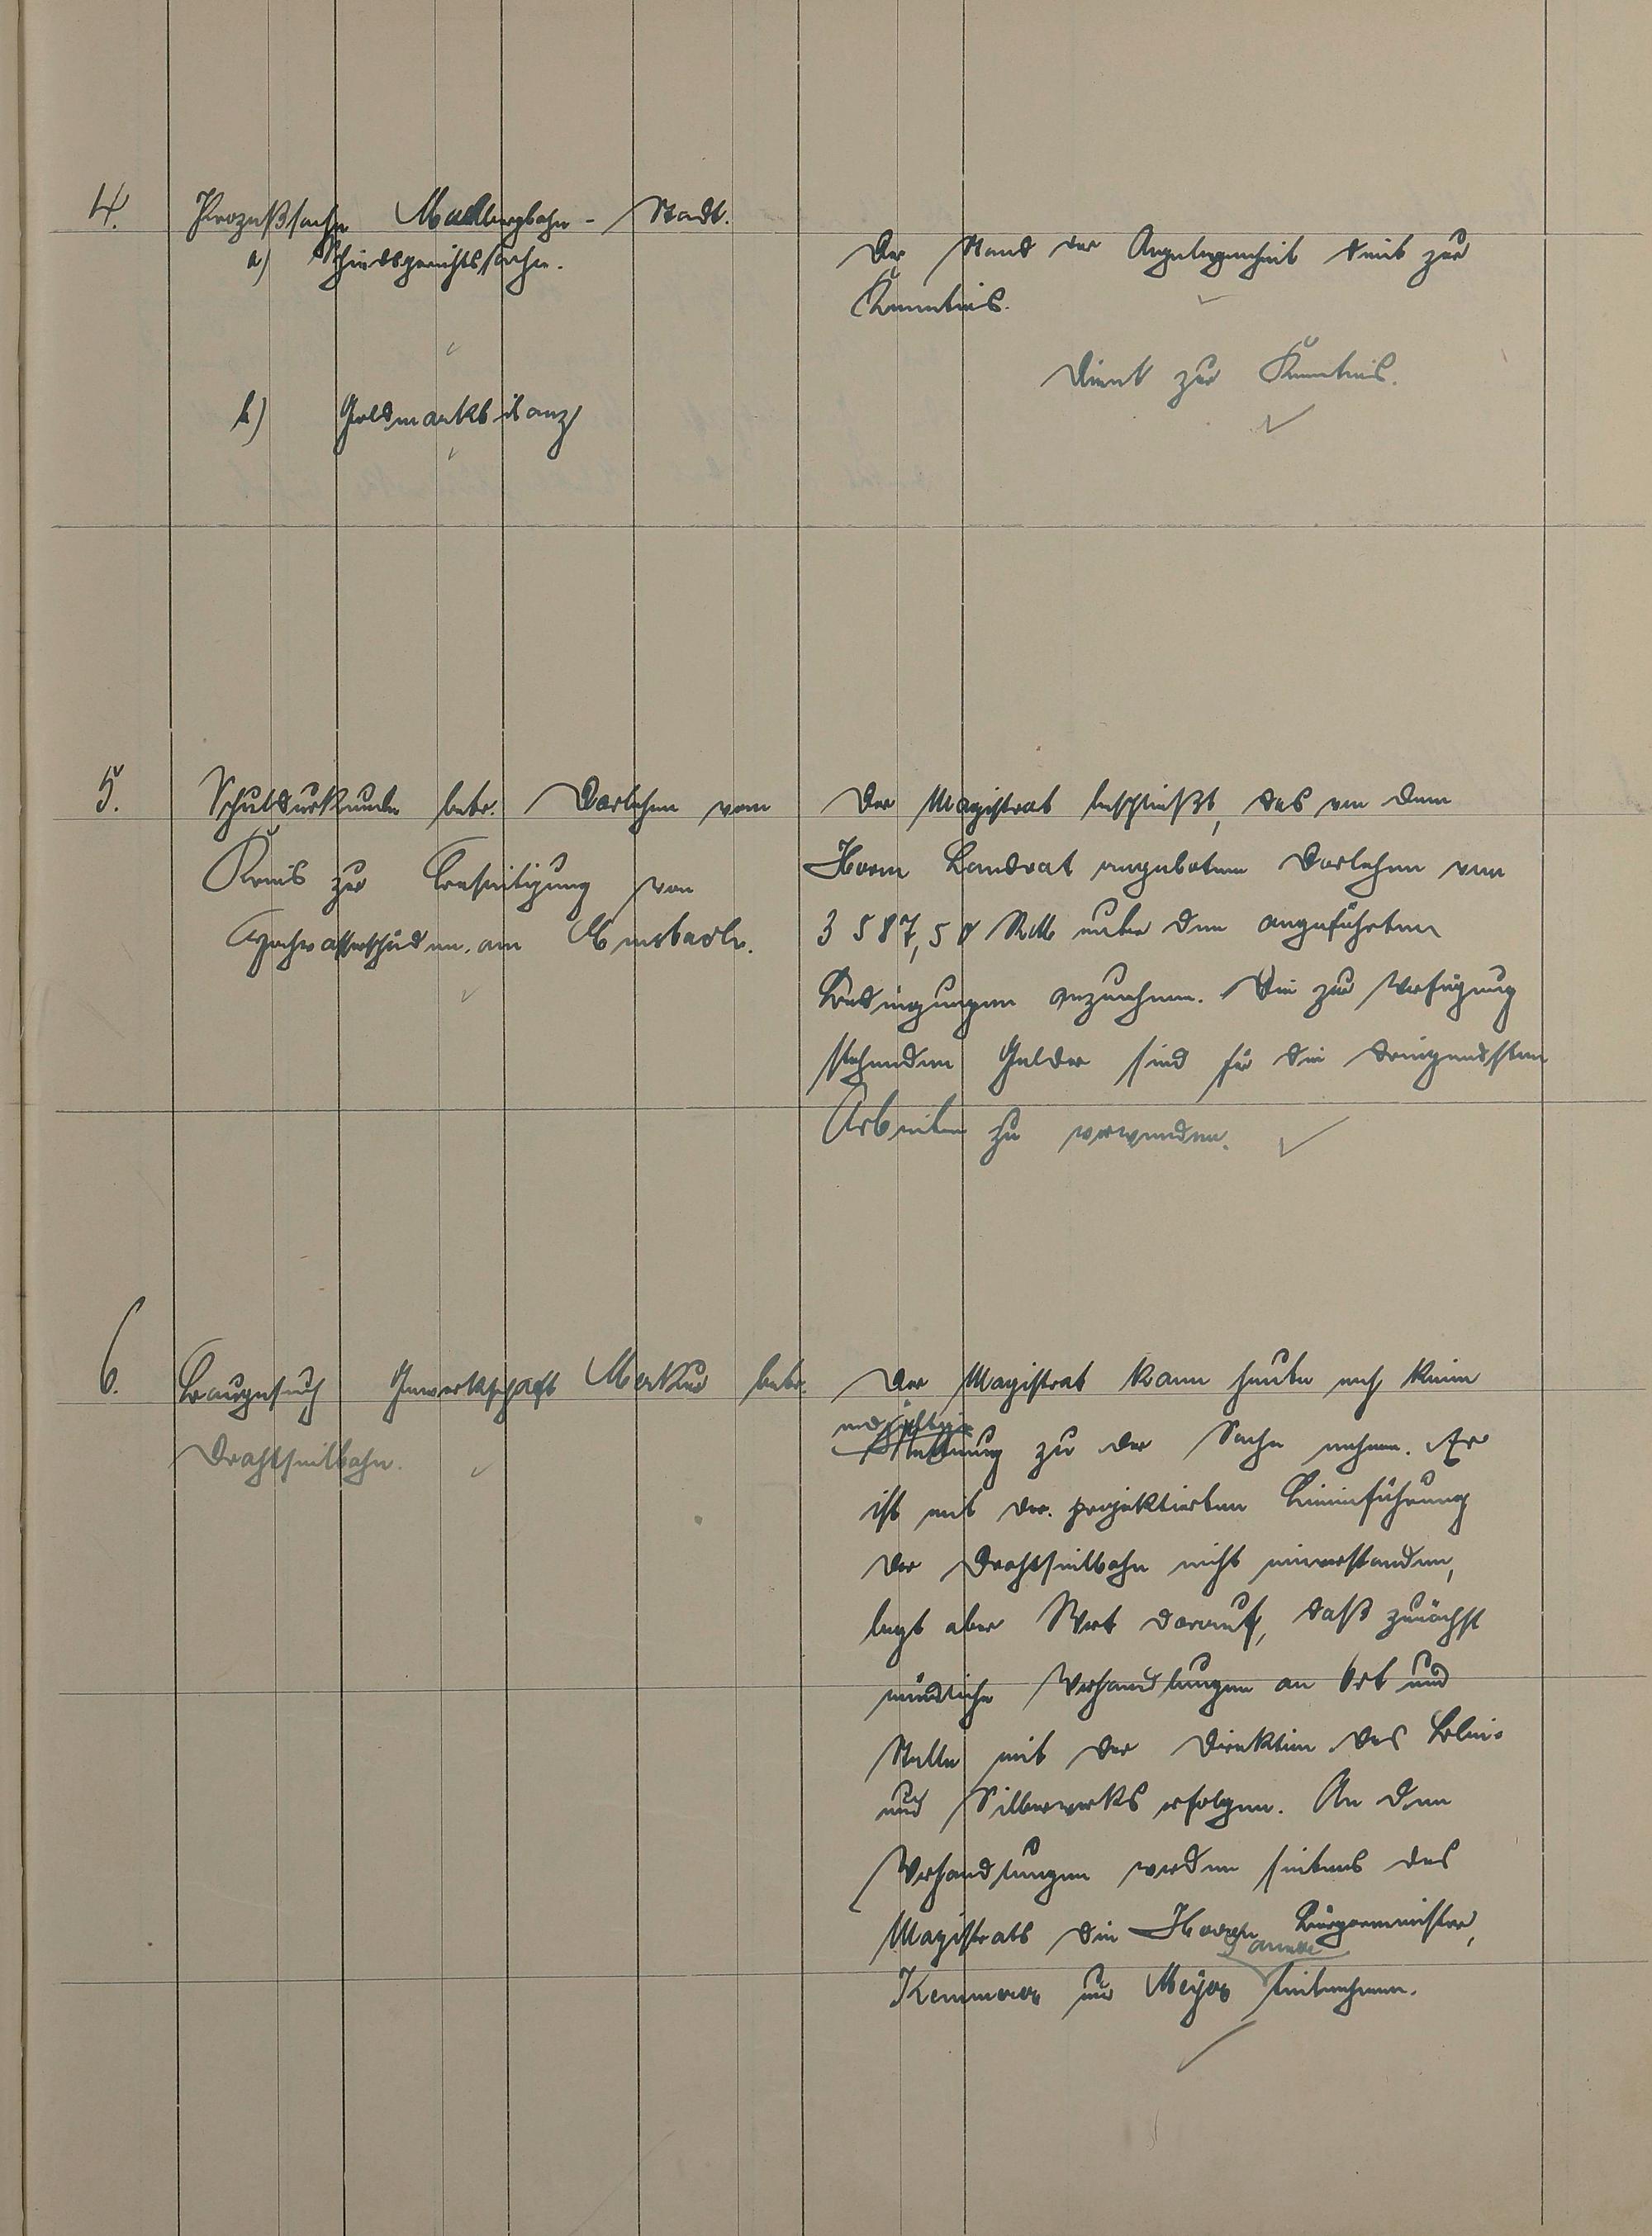 4. Prozeßsache Malbergbahn - Stadt.
a) Schiedsgerichtssache.
Der Stand der Angelegenheit dient zur
Kenntnis.
b) Goldmarkbilanz
Dient zur Kenntnis.
5. Schuldurkunde betr. Darlehen vom
Kreis zur Beseitigung von
Hochwasserschäden am Emsbach.
Der Magistrat beschließt, das von dem
Herrn Landrat angebotene Darlehen von
3 587,50 RM unter den angeführten
Bedingungen anzunehmen. Die zur Verfügung
stehenden Gelder sind für die dringendsten
Arbeiten zu verwenden.
6. Baugesuch Gewerkschaft Merkur betr.
Drahtseilbahn.
Der Magistrat kann heute noch keine
endgültige
Stellung zu der Sache nehmen. Er
ist mit der projektierten Linienführung
der Drahtseilbahn nicht einverstanden,
legt aber Wert darauf, daß zunächst
mündliche Verhandlungen an Ort und
Stelle mit der Direktion des Blei-
und Silberwerks erfolgen. An den
Verhandlungen werden seitens des
Magistrats die Herren Bürgermeister,
Kemmerer und Meyer teilnehmen.